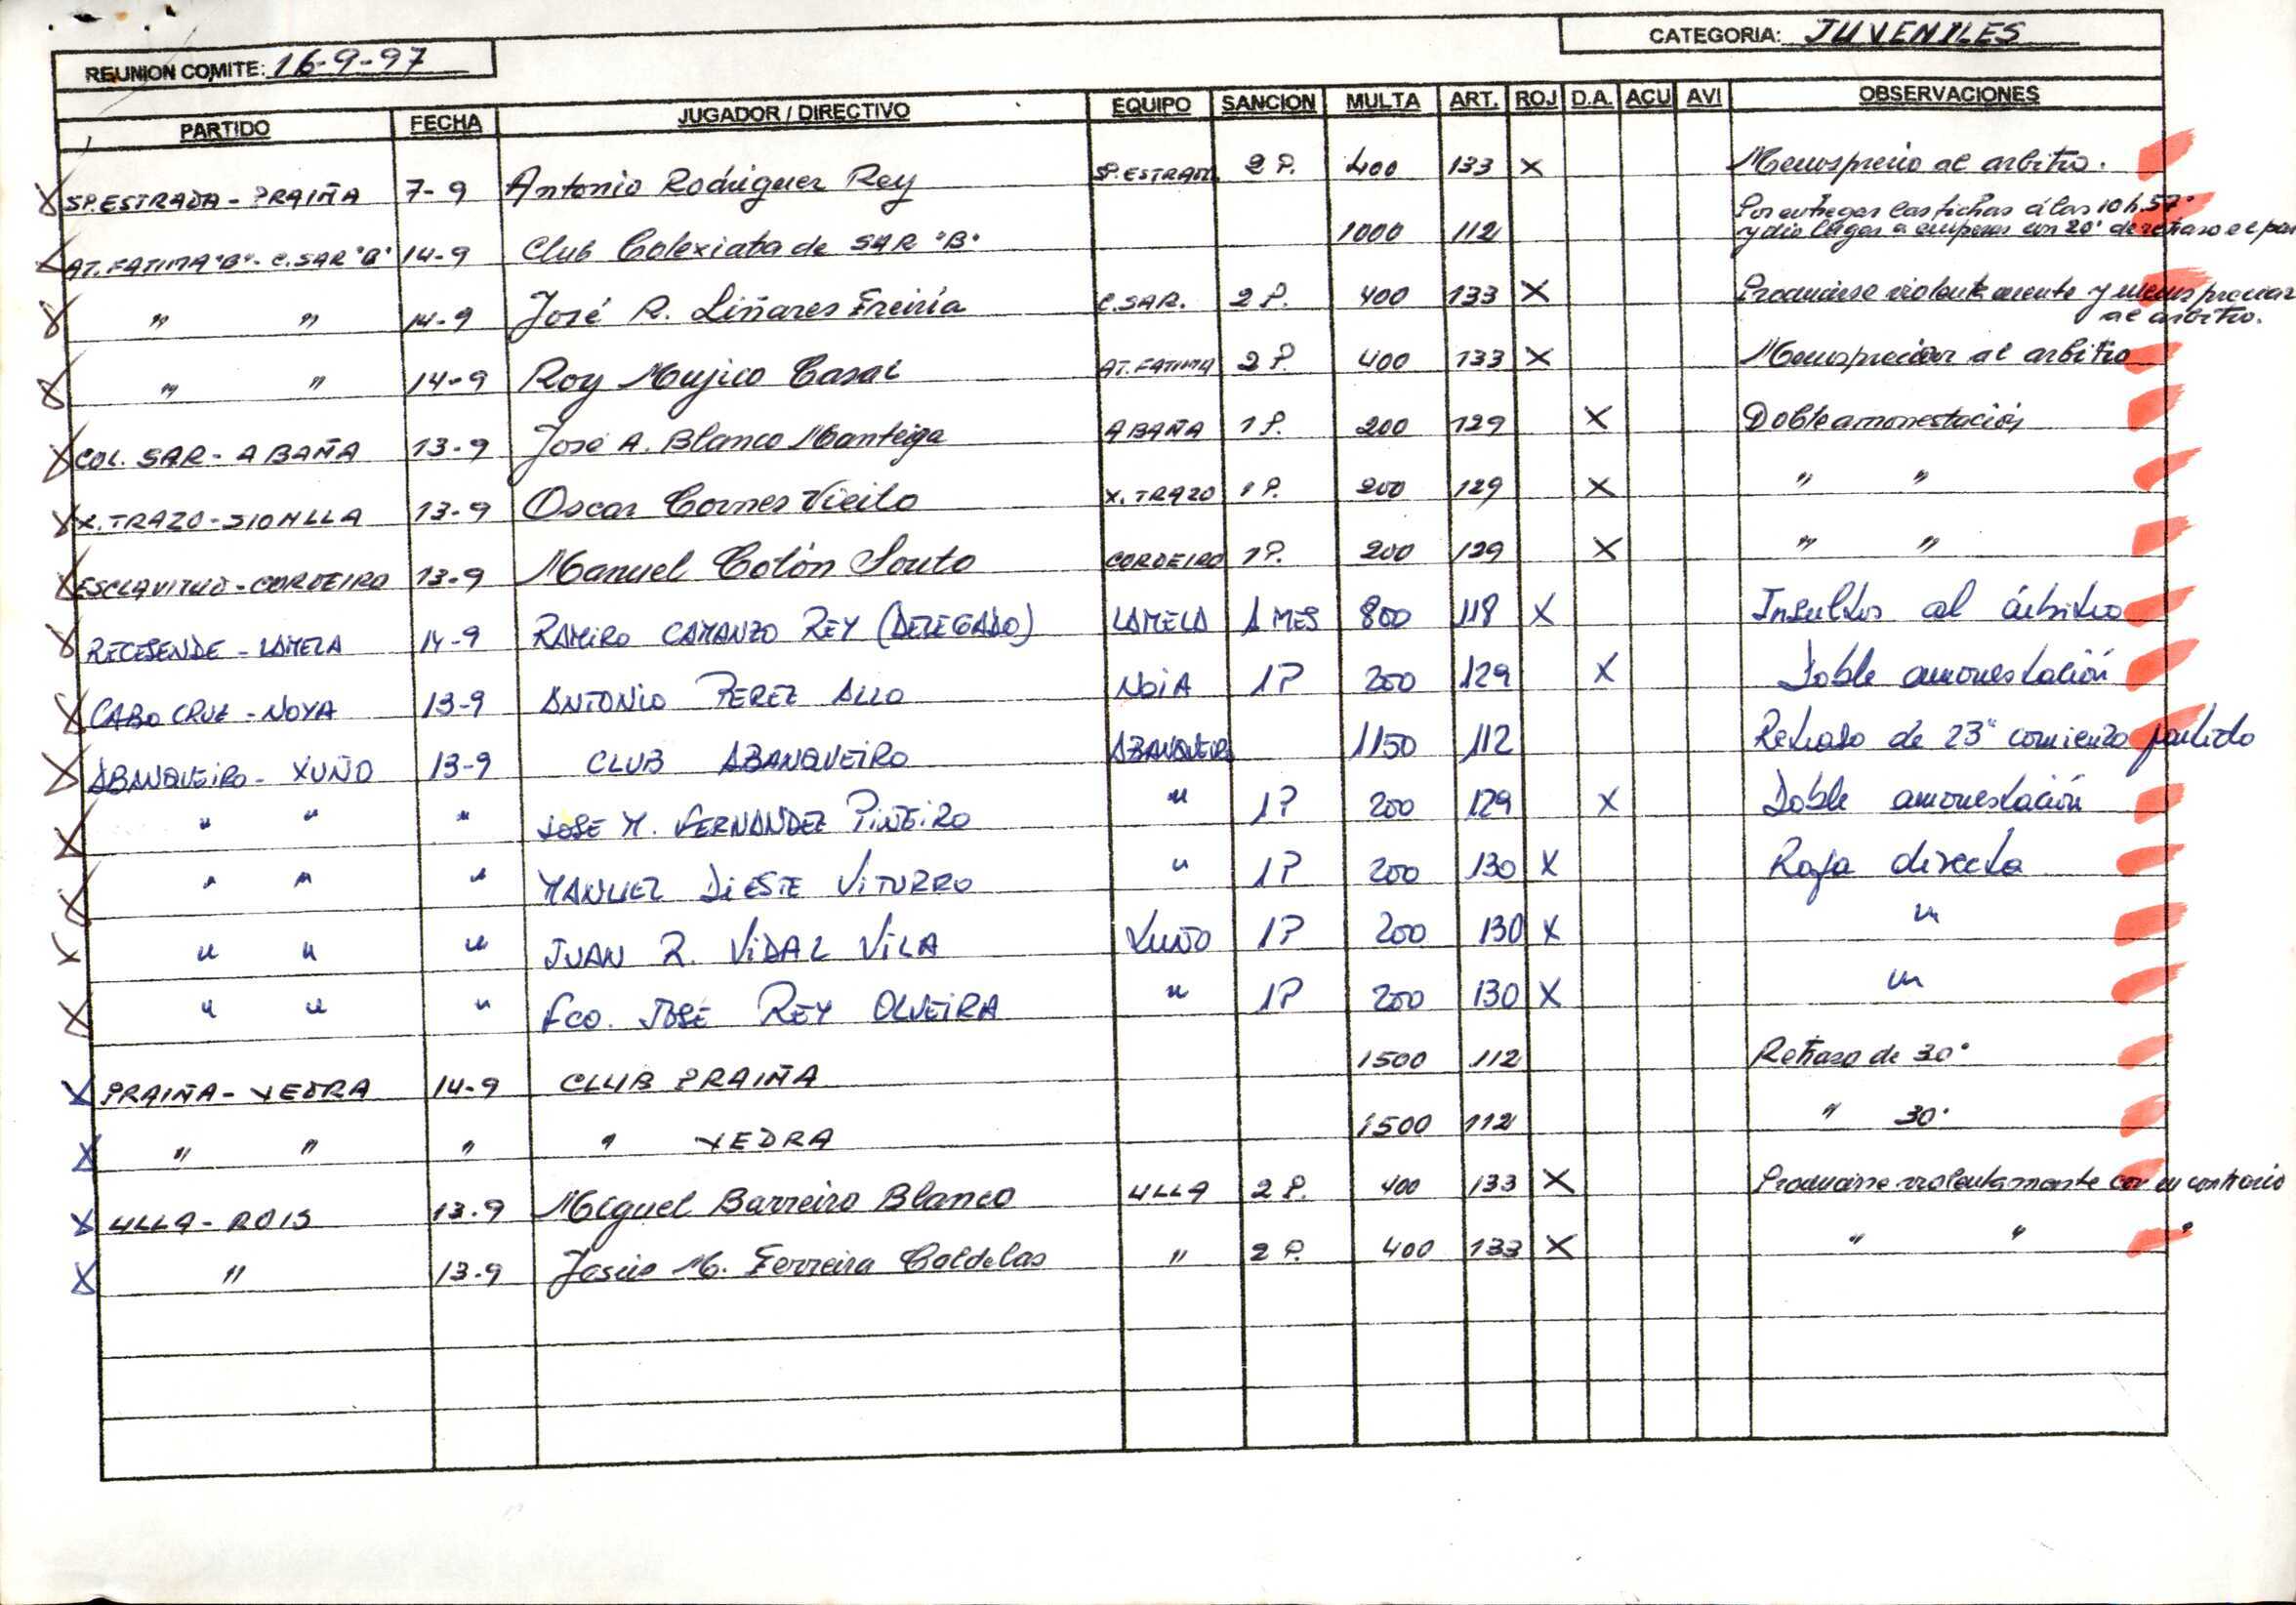 REUNION COMITE: 16-9-97 CATEGORIA: JUVENILES
PARTIDO FECHA JUGADOR / DIRECTIVO EQUIPO SANCION MULTA ART. ROJ D.A. ACU AVI OBSERVACIONES
X SP. ESTRADA - PRAIÑA 7-9 Antonio Rodriguez Rey SP. ESTRADA 2 P. 400 133 X Menosprecio al arbitro.
X AT. FATIMA "B" - C. SAR "B" 14-9 Club Colexiata de SAR "B" 1000 112 Por entregar las fichas á las 10 h. 57'
y dio lugar a empezar con 20' de retraso el par
X " " 14-9 José R. Liñares Freiría C. SAR. 2 P. 400 133 X Producirse violentamente y menospreciar
al arbitro.
X " " 14-9 Roy Mujico Casal AT. FATIMA 2 P. 400 133 X Menospreciar al arbitro
X COL. SAR - A BAÑA 13-9 José A. Blanco Manteiga A BAÑA 1 P. 200 129 X Doble amonestación
X X. TRAZO - SIONLLA 13-9 Oscar Cornes Vieito X. TRAZO 1 P. 200 129 X " "
X ESCLAVITUD - CORDEIRO 13-9 Manuel Colón Souto CORDEIRO 1 P. 200 129 X " "
X RECESENDE - LAMELA 14-9 RAMIRO CAMANZO REY (DELEGADO) LAMELA 1 MES 800 118 X Insultos al árbitro
X CABO CRUZ - NOYA 13-9 ANTONIO PEREZ ALLO NOIA 1P 200 129 X Doble amonestación
X ABANQUEIRO - XUÑO 13-9 CLUB ABANQUEIRO ABANQUEIRO 1150 112 Retraso de 23" comienzo partido
X " " " JOSE M. FERNANDEZ PIÑEIRO " 1P 200 129 X Doble amonestación
X " " " MANUEL DIESTE VITURRO " 1P 200 130 X Roja directa
X " " " JUAN R. VIDAL VILA XUÑO 1P 200 130 X "
X " " " Fco. JOSE REY OLVEIRA " 1P 200 130 X "
X PRAIÑA - VEDRA 14-9 CLUB PRAIÑA 1500 112 Retraso de 30'
X " " " " VEDRA 1500 112 " 30'
X ULLA - ROIS 13-9 Miguel Barreiro Blanco ULLA 2 P. 400 133 X Producirse violentamente con un contrario
X " 13-9 Jesús M. Ferreira Caldelas " 2 P. 400 133 X " " "